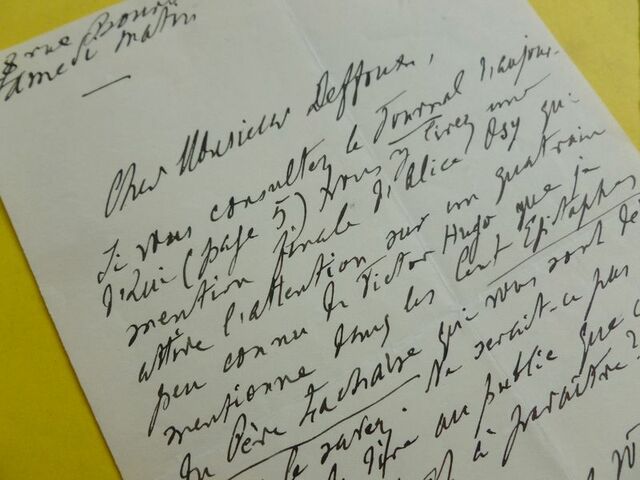 8 rue
Samedi matin
Cher Monsieur Deffoux,
Si vous consultez le Journal d'aujour-
d'hui (page 5) vous y lirez une
mention finale d'Alice Osy qui
attire l'attention sur un quatrain
peu connu de Victor Hugo que je
mentionne dans les Cent Epitaphes
du Père Lachaise qui vous sont dé
le savez. Ne serait-ce pas
dire au public que
à paraître ?